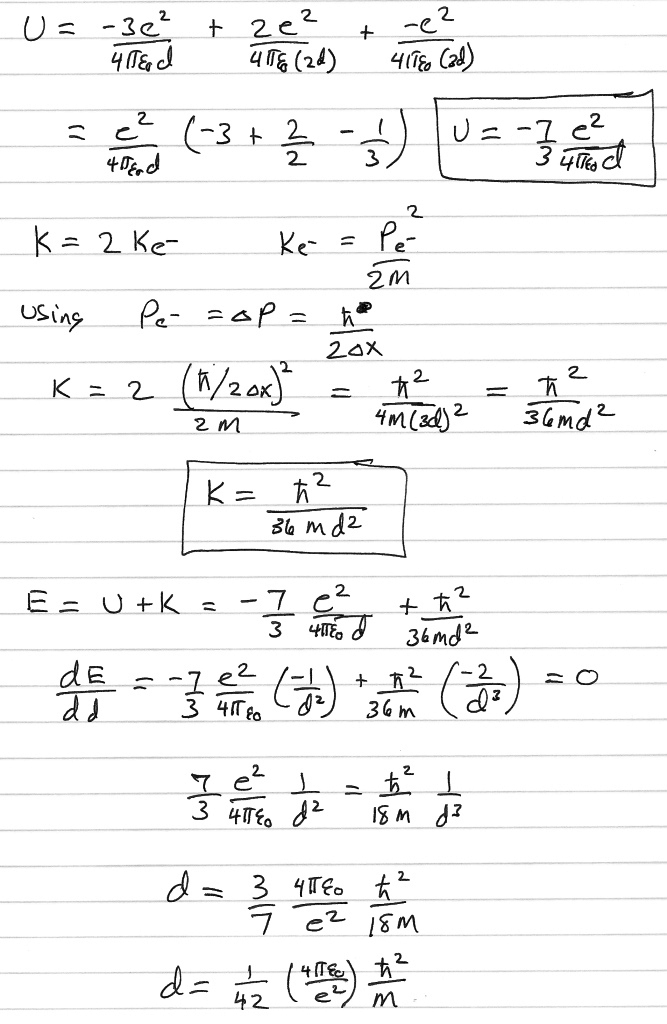 U = -3e²/4πε₀d + 2e²/4πε₀(2d) + -e²/4πε₀(3d)
= e²/4πε₀d (-3 + 2/2 - 1/3) U = -7/3 e²/4πε₀d
K = 2 Ke- Ke- = Pe-²/2M
Using Pe- = ΔP = ħ/2Δx
K = 2 (ħ/2Δx)²/2M = ħ²/4M(3d)² = ħ²/36md²
K = ħ²/36md²
E = U + K = -7/3 e²/4πε₀d + ħ²/36md²
dE/dd = -7/3 e²/4πε₀ (-1/d²) + ħ²/36m (-2/d³) = 0
7/3 e²/4πε₀ 1/d² = ħ²/18M 1/d³
d = 3/7 4πε₀/e² ħ²/18M
d = 1/42 (4πε₀/e²) ħ²/M